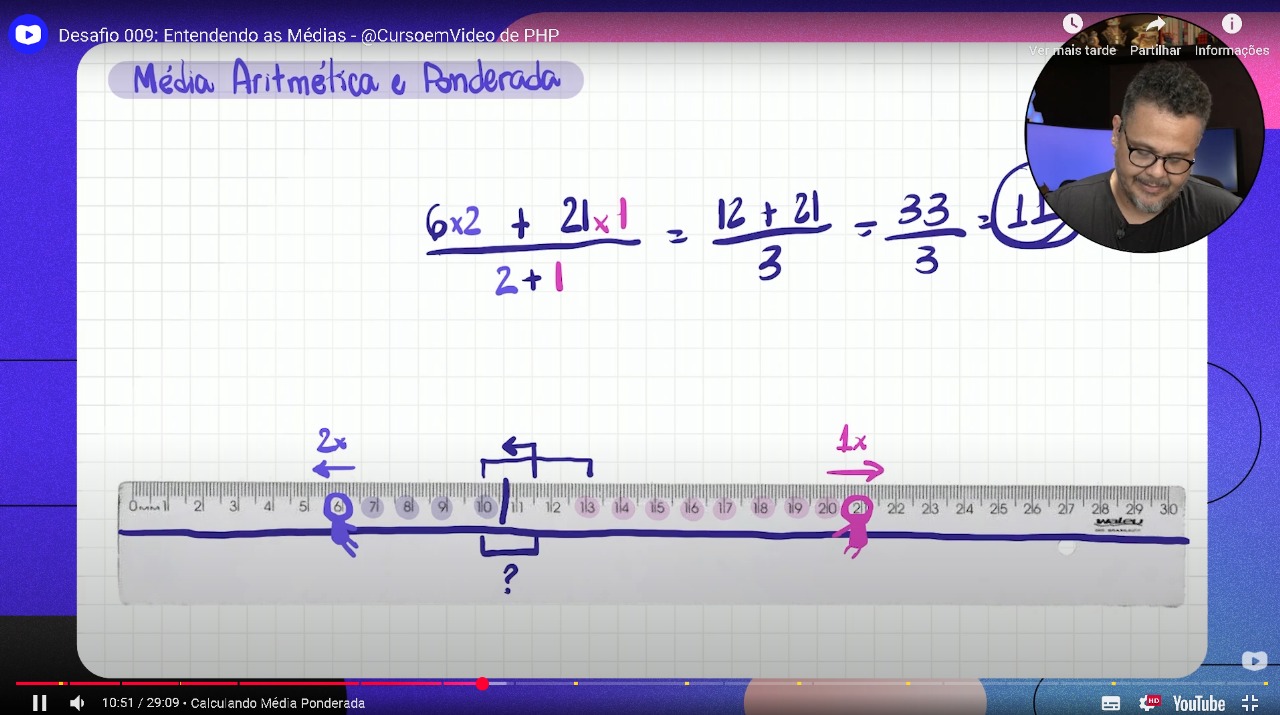 Desafio 009: Entendendo as Médias - @CursoemVideo de PHP
Ver mais tarde Partilhar Informações
Média Aritmética e Ponderada
6x2 + 21x1 = 12 + 21 = 33 = 11
2 + 1 3 3
2x 1x
0 MM 1 2 3 4 5 6 7 8 9 10 11 12 13 14 15 16 17 18 19 20 21 22 23 24 25 26 27 28 29 30
waleu
?
10:51 / 29:09 • Calculando Média Ponderada
HD YouTube